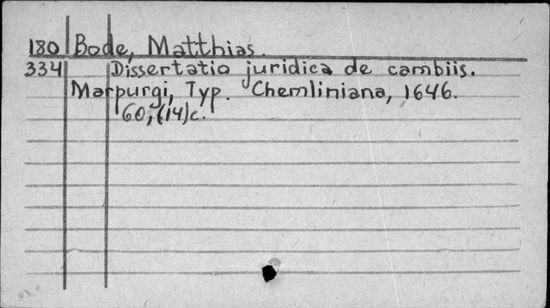 180 Bode, Matthias.
334 Dissertatio juridica de cambiis.
Marpurgi, Typ. Chemliniana, 1646.
60, (14) c.